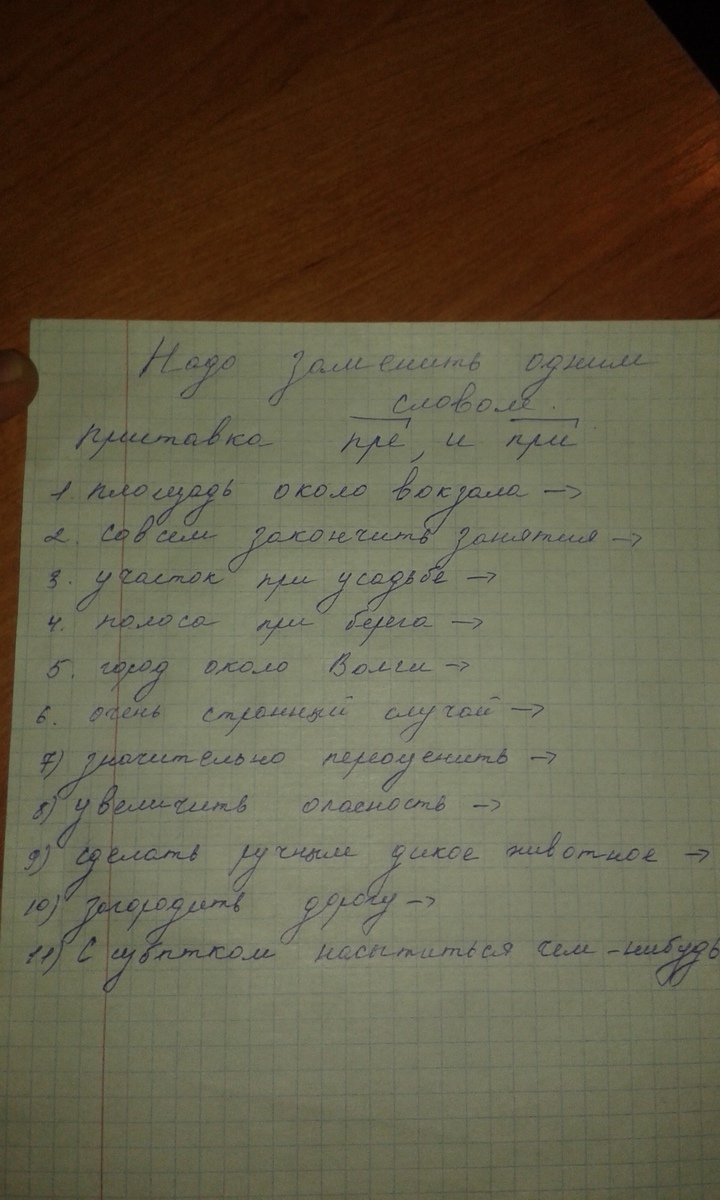 Надо заменить одним
словом.
приставка пре, и при
1. площадь около вокзала →
2. совсем закончить занятия →
3. участок при усадьбе →
4. полоса при берега →
5. город около Волги →
6. очень странный случай →
7) значительно переоценить →
8) увеличить опасность →
9) сделать ручным дикое животное →
10) загородить дорогу →
11) С избытком насытиться чем-нибудь